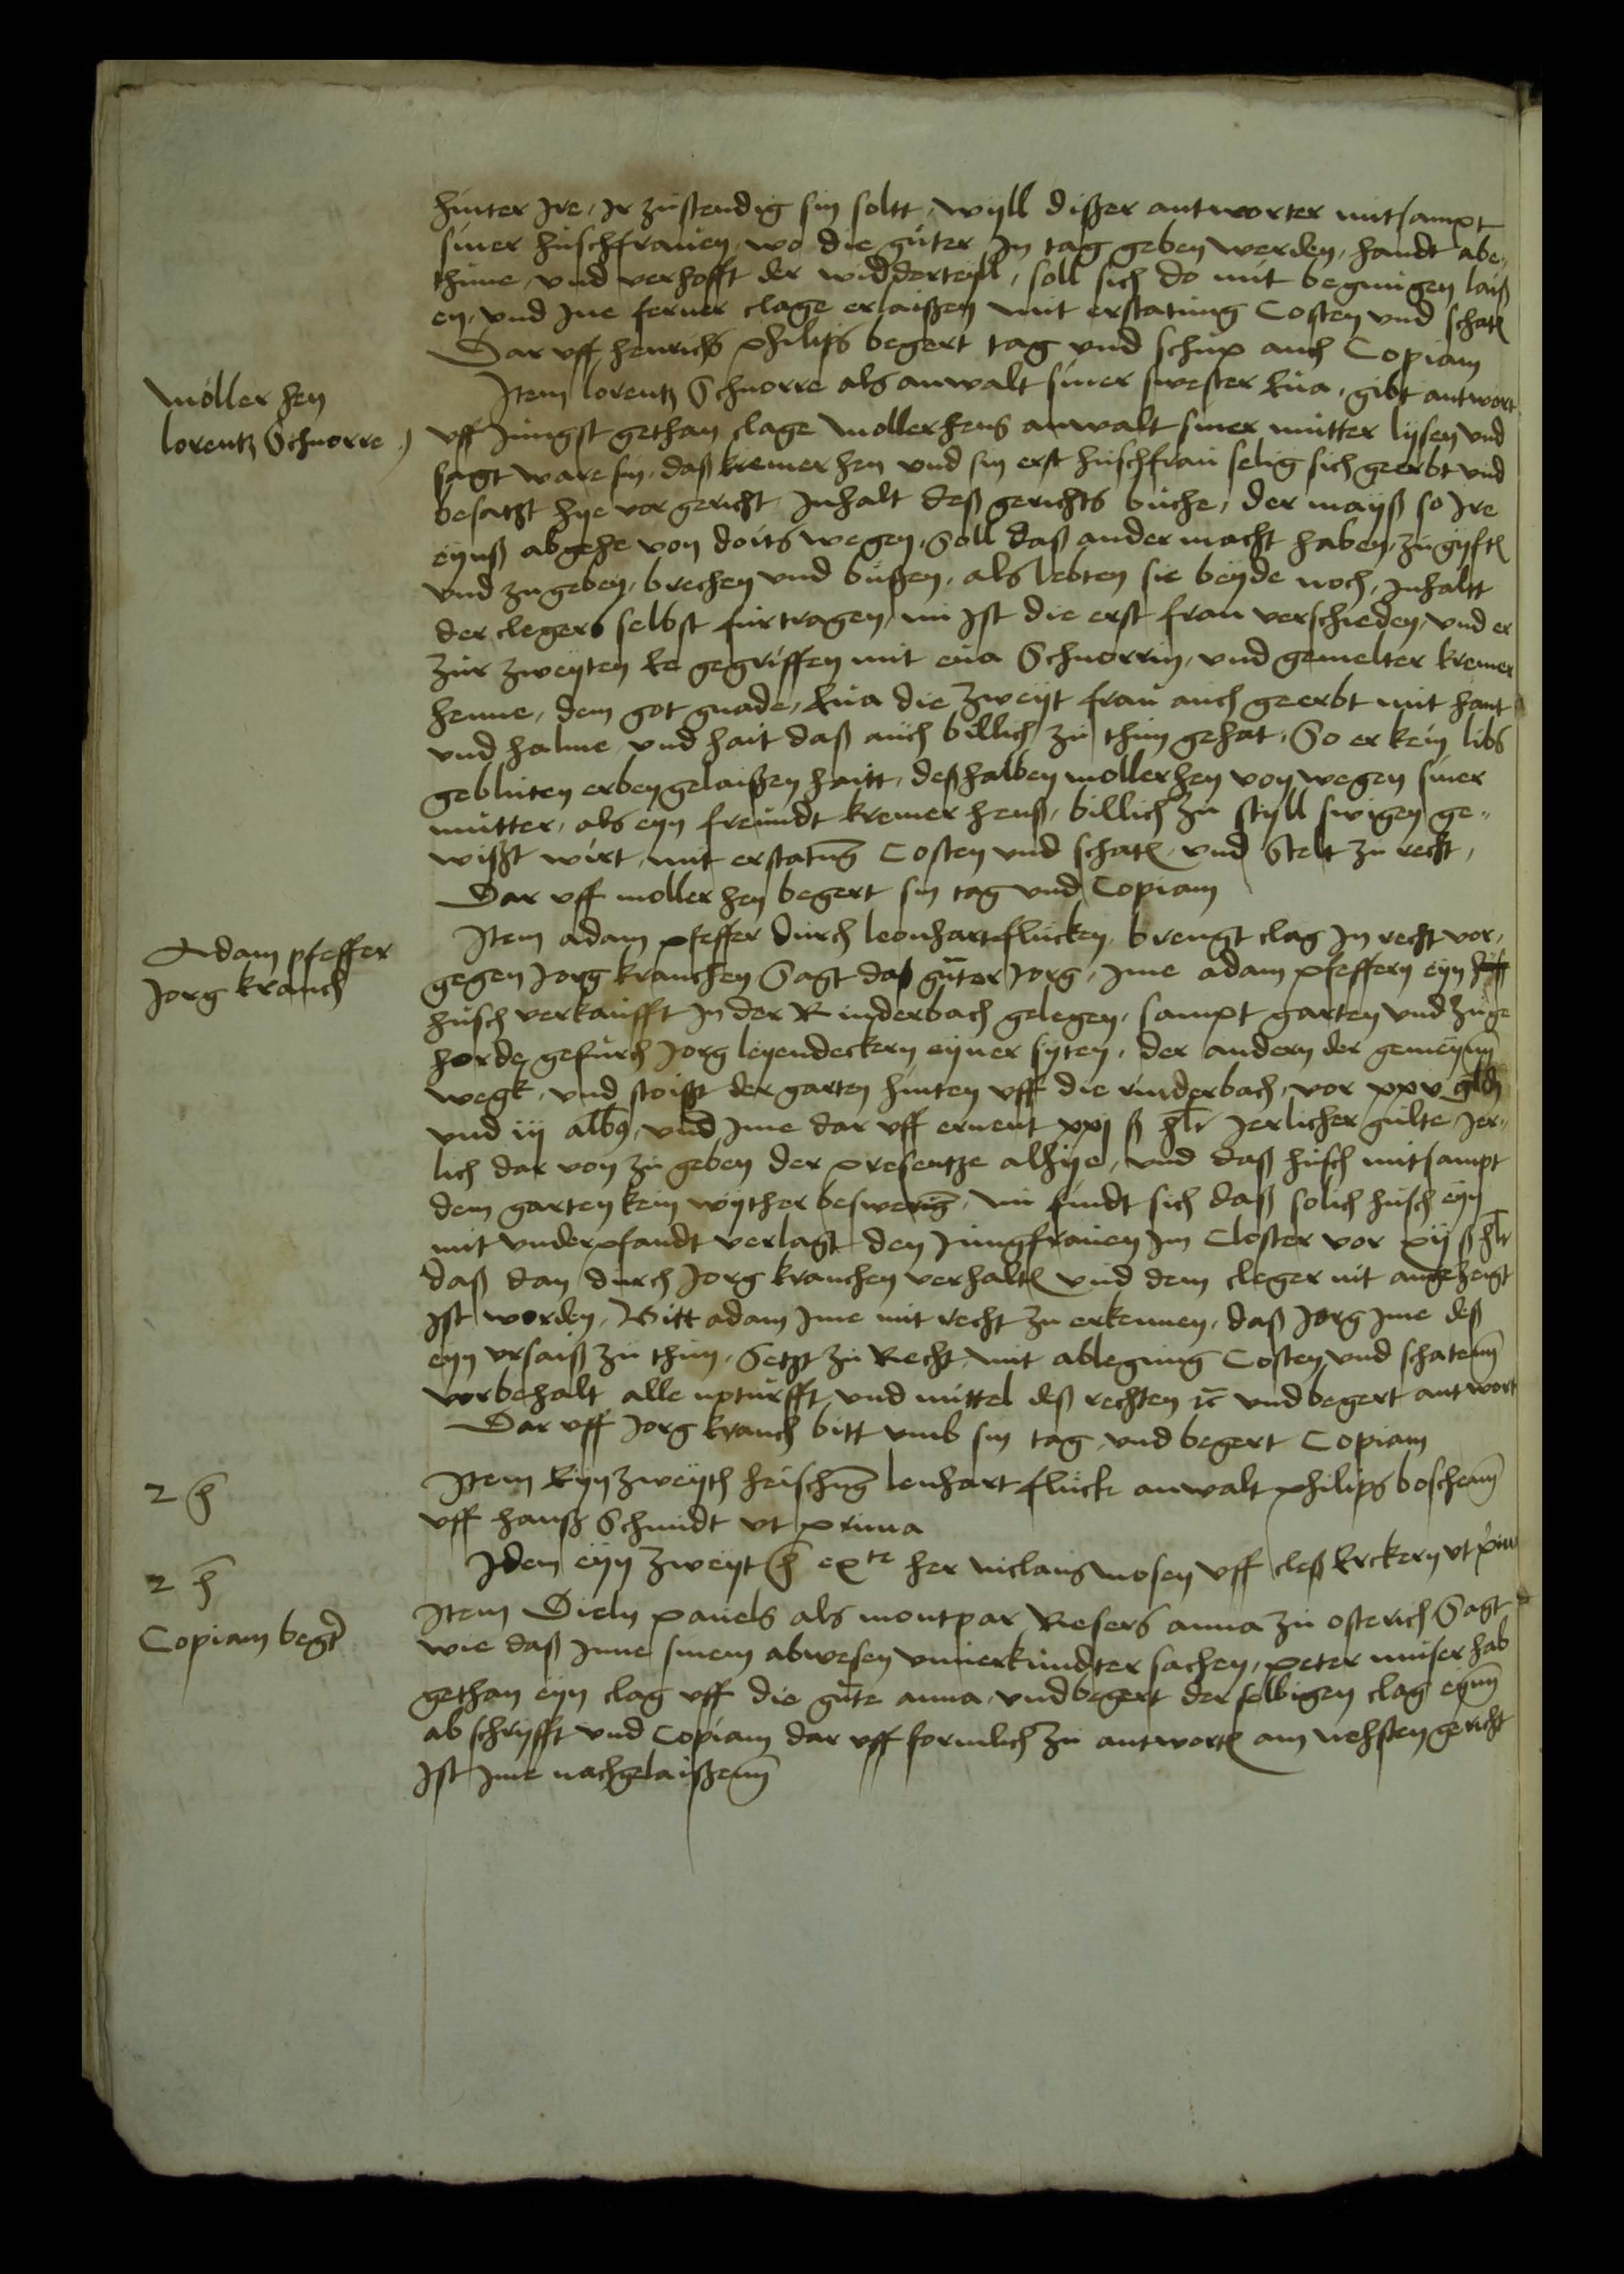 hinter Ire, Ir zustendig sin soltt, wyll dißer antworter mitsampt
siner huschfrauen, wo die guter In tag geben werden, handt abe„
thune, und verhofft der widderteyll, soll sich do mit benugen laiß
en, und Ine ferner clage erlaißen mit erstatung Costen und schaten
Dar uff henrichs philips begert tag und schup auch Copiam
Moller hen
lorentz Schnorre
Item lorentz Schnorre als anwalt siner swester Eua, gibt antwort
uff Jungst gethan clage Mollerhens anwalt siner mutter lysen und
sagt ware sin, daß kremer hen und sin erst huschfrau selig sich geerbt und
besatzt hye vor gericht Inhalt deß gerichts buche, der mayß so Ire
eynß abgehe von doits wegen, Soll daß ander macht haben, zu gyften
und zu geben, brechen und bußen, als lebten sie beyde noch, Inhaltt
der clegers selbst furtragen, nu Ist die erst frau verschieden, und er
zur zweyten Ee gegriffen mit eua Schnorrin, und gemelter kremer
henne, dem got gnade, Eua die zweyt frau auch geerbt mit hant
und halme, und hait daß auch billich zu thun gehat, So er kein libs
gebluten erben gelaißen haitt, deßhalben mollerhen von wegen siner
mutter, als eyn freundt kremer henß, billich zu styll swigen ge„
wißt wirt, mit erstatung Costen und schaten, und Stelt zu recht,
Dar uff moller hen begert sin tag und Copiam
Adam pfeffer
Jorg kranch
Item adam pfeffer durch leonhart flucken, brengt clag In recht vor,
gegen Jorg kranchen Sagt daß guter Jorg, Ime adam pfeffern eyn
husch verkaufft In der Rinderbach gelegen, sampt garten und zuge
horde, gefurch Jorg leyendeckern eyner syten, der andern der gemeynn
wegk, und stoißt der garten hinten uff die rinderbach, vor xxv gldn
und iij albus, und Ime dar uff ernent xxj ß hlr Jerlicher gulte, Jer„
lich dar von zu geben der presentze alhye, und daß husch mitsampt
dem garten kein wyther beswerung, nu findt sich daß solich husch eyn
mit underpfandt verlagt den Jungfrauen Im Closter vor xij ß hlr
daß dan durch Jorg kranchen verhalten und dem cleger nit angezeigt
Ist worden, Bitt adam Ime mit recht zu erkennen, daß Jorg Ime deß
eyn ursaiß zu thun, Setzt zu Recht, mit ablegung Costen und schatenn
vorbehalt alle noturfft und mittel deß rechten ꝛc und begert antwort
Dar uff Jorg kranch bitt umb sin tag und begert Copiam
2 h
Item Eyn zweyth heischung lenhart fluck anwalt philips boschenn
uff hanß Schmidt ut prima
2 h
Idem eyn zweyt h ex te her niclaus mosen uff cleß Erckern ut prima
Copiam begert
Item Dieln pauels als montpar Riesers anna zu osterich Sagt
wie daß Inne sinem abwesen unuerkundter sachen, peter muser hab
gethan eyn clag uff die gute anna, und begert der selbigen clag eynn
abschrifft und Copiam dar uff formlich zu antworten am nehsten gericht
Ist Ime nachgelaißenn